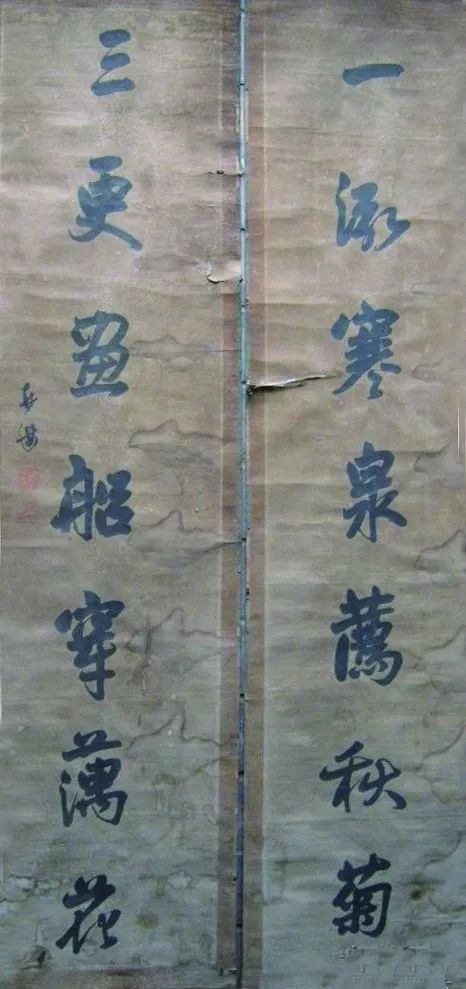 一泓寒泉薦秋菊
三更畫船穿蕅花